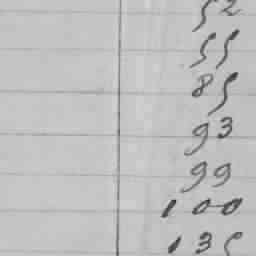 52
55
85
93
99
100
135